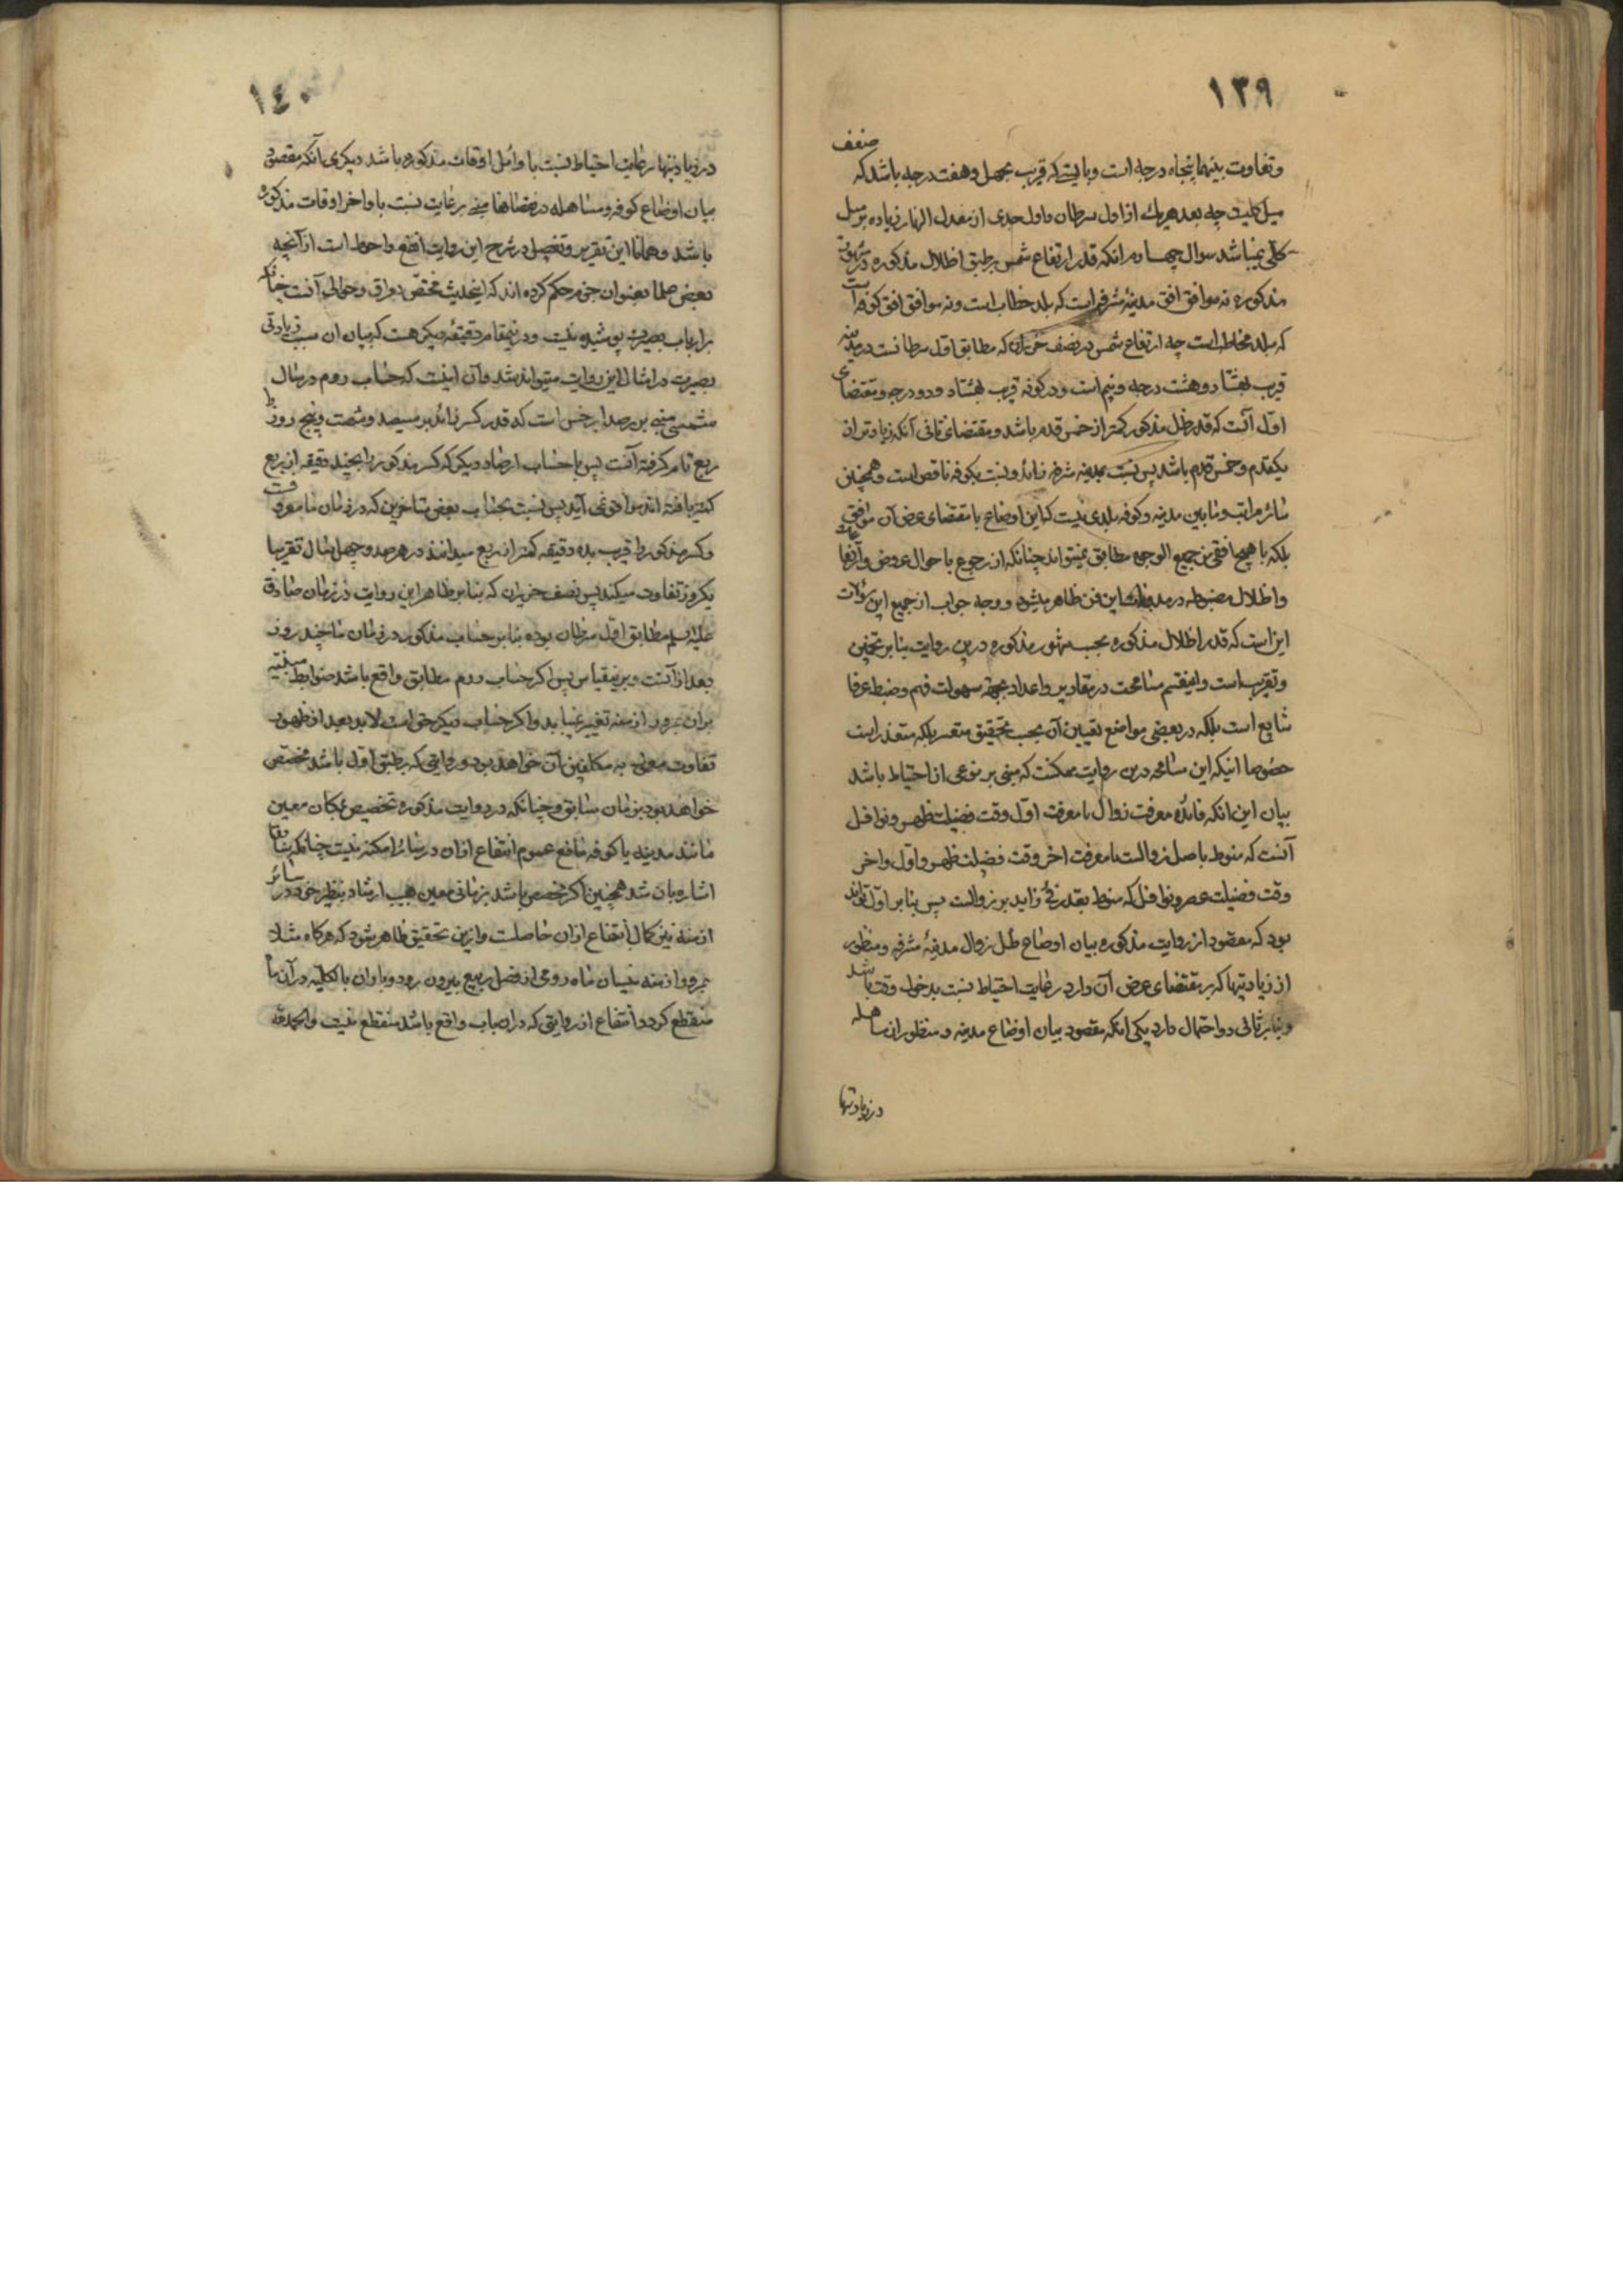 ١٣٩
ضعف
وتفاوت بینهما پنجاه درجه است وبایستی که قریب بچهل وهفت درجه باشد که
میل کلیست چه بعد هریك از اول سرطان واول جدی از معدل النهار زیاده بر میل
کلی نمیباشد سوال چهارم انکه قدر ارتفاع شمس بر طبق اظلال مذکوره در شهور
مذکوره نه موافق افق مدینهٔ مشرفه است که بلد خطاب است ونه موافق افق کوفه است
که بلد مخاطب است چه ارتفاع شمس در نصف حزیران که مطابق اول سرطانست در مدینه
قریب بهشتاد وهشت درجه ونیم است ودر کوفه قریب بهشتاد ودو درجه ومقتضای
اول آنست که قدر ظل مذکور کمتر از خمس قدم باشد ومقتضای ثانی آنکه زیادتر از
یکقدم وخمس قدم باشد پس نسبت بمدینه مشرفه زائد ونسبت بکوفه ناقص است وهمچنین
سائر مراتب ومابین مدینه وکوفه بلدی نیست که این اوضاع با مقتضای عرض آن موافق
بلکه با هیچ افقی من جمیع الوجوه مطابق نمیتواند چنانکه از رجوع باحوال عروض وارتفاعات
واظلال مضبوطه در مدونات این فن ظاهر میشود ووجه جواب از جمیع این سؤالات
این است که قدر اظلال مذکوره بحسب شهور مذکوره درین روایت بنا بر تخمین
وتقریب است واینقسم مسامحت در مقادیر واعداد بجهة سهولت فهم وضبط عرفا
شایع است بلکه در بعضی مواضع تعیین آن بحسب تحقیق متعسر بلکه متعذر است
خصوصا اینکه این مسامحه درین روایت ممکنست که مبنی بر نوعی از احتیاط باشد
بیان این انکه فائده معرفت زوال یا معرفت اول وقت فضیلت ظهر ونوافل
آنست که منوط باصل زوالست یا معرفت اخر وقت فضیلت ظهر واول واخر
وقت فضیلت عصر ونوافل که منوط بقدر فئ زاید بر زوالست پس بنابر اول تواند
بود که مقصود از روایت مذکوره بیان اوضاع ظل زوال مدینهٔ مشرفه ومنظور
از زیادتیها که بر مقتضای عرض آن دارد رعایت احتیاط نسبت بدخول وقت باشد
وبنابر ثانی دو احتمال دارد یکی انکه مقصود بیان اوضاع مدینه ومنظور از مساهله
در زیادتیها
١٤٠
در زیادتیها رعایت احتیاط نسبت باوائل اوقات مذکوره باشد دیگری آنکه مقصود
بیان اوضاع کوفه ومساهله در نقصانها مبنی بر رعایت نسبت باواخر اوقات مذکوره
باشد وهمانا این تقریر وتفصیل در شرح این روایت انفع واحوط است از آنچه
بعضی علما بعنوان جزم حکم کرده اند که اینحدیث مختص بعراق وحوالی آنست چنانکه
بر ارباب بصیرت پوشیده نیست ودرینمقام دقیقهٔ دیگر هست که بیان ان سبب زیادتی
بصیرت در امثال این روایت میتواند شد وآن اینست که حساب روم در سال
شمسی مبنی بر رصد ابرخس است که قدر کسر زائد بر سیصد وشصت وپنج روز را
ربع تام گرفته آنست پس با حساب ارصاد دیگر که کسر مذکور را بچند دقیقه از ربع
کمتر یافته اند موافق نمی آید پس نسبت بحساب بعضی متاخرین که در زمان ما معروفست
وکسر مذکور را قریب بده دقیقه کمتر از ربع میدانند در هر صد وچهل سال تقریبا
یکروز تفاوت میکند پس نصف حزیران که بنابر ظاهر این روایت در زمان صادق
علیه السلم مطابق اول سرطان بوده بنا بر حساب مذکور در زمان ما چند روز
بعد از آنست وبرینقیاس پس اگر حساب روم مطابق واقع باشد ضوابط مبنیه
بران بمرور ازمنه تغییر نمییابد واگر حساب دیگر حق است لابد بعد از ظهور
تفاوت معمول به مکلفین آن خواهد بود وروایتی که بر طبق اول باشد مختص
خواهد بود بزمان سابق وچنانکه در روایت مذکوره تخصیص بمکان معین
مانند مدینه یا کوفه مانع عموم انتفاع ازان در سائر امکنه نیست چنانکه سابقا
اشاره بان شد همچنین اگر مخصص باشد بزمانی معین بسبب ارشاد بنظیر خود در سائر
ازمنه نیز کمال انتفاع ازان حاصلست وازین تحقیق ظاهر میشود که هرگاه مثلا
بمرور ازمنه نیسان ماه رومی از فصل ربیع بیرون رود وباران بالکلیه در آن ماه
منقطع گردد انتفاع از روایتی که دران باب واقع باشد منقطع نیست والحمدلله